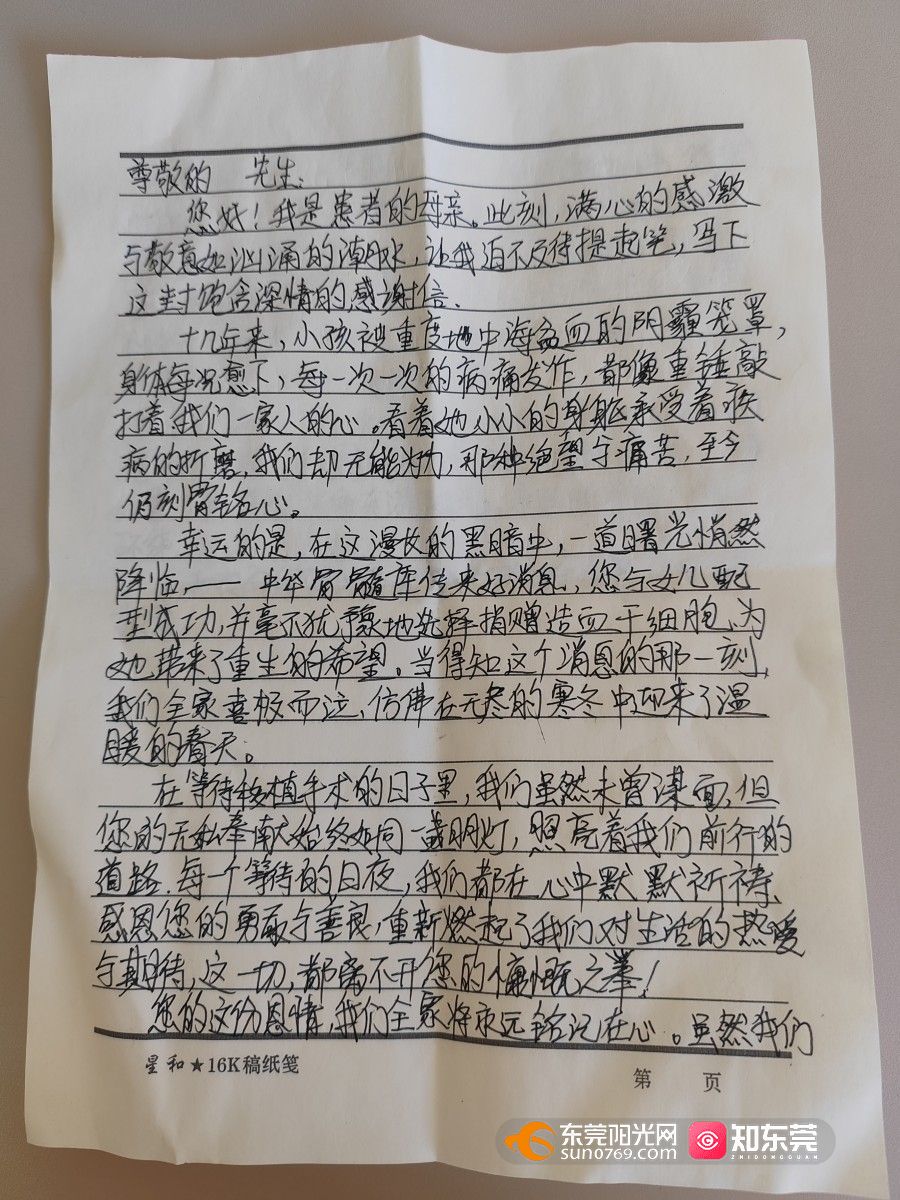 尊敬的 先生:
您好!我是患者的母亲。此刻,满心的感激
与敬意如汹涌的潮水,让我迫不及待提起笔,写下
这封饱含深情的感谢信.
十九年来,小孩被重度地中海贫血的阴霾笼罩,
身体每况愈下,每一次一次的病痛发作,都像重锤敲
打着我们一家人的心。看着她小小的身躯承受着疾
病的折磨,我们却无能为力,那种绝望与痛苦,至今
仍刻骨铭心。
幸运的是,在这漫长的黑暗中,一道曙光悄然
降临,——中华骨髓库传来好消息,您与女儿配
型成功,并毫不犹豫地选择捐赠造血干细胞,为
她带来了重生的希望。当得知这个消息的那一刻,
我们全家喜极而泣,仿佛在无尽的寒冬中迎来了温
暖的春天。
在等待移植手术的日子里,我们虽然未曾谋面,但
您的无私奉献始终如同一盏明灯,照亮着我们前行的
道路,每一个等待的日夜,我们都在心中默默祈祷,
感恩您的勇敢与善良,重新燃起了我们对生活的热爱
与期待,这一切,都离不开您的慷慨之举!
您的这份恩情,我们全家将永远铭记在心。虽然我们
星和★16K稿纸笺
第 页
东莞阳光网
sun0769.com
知东莞
ZHIDONGGUAN